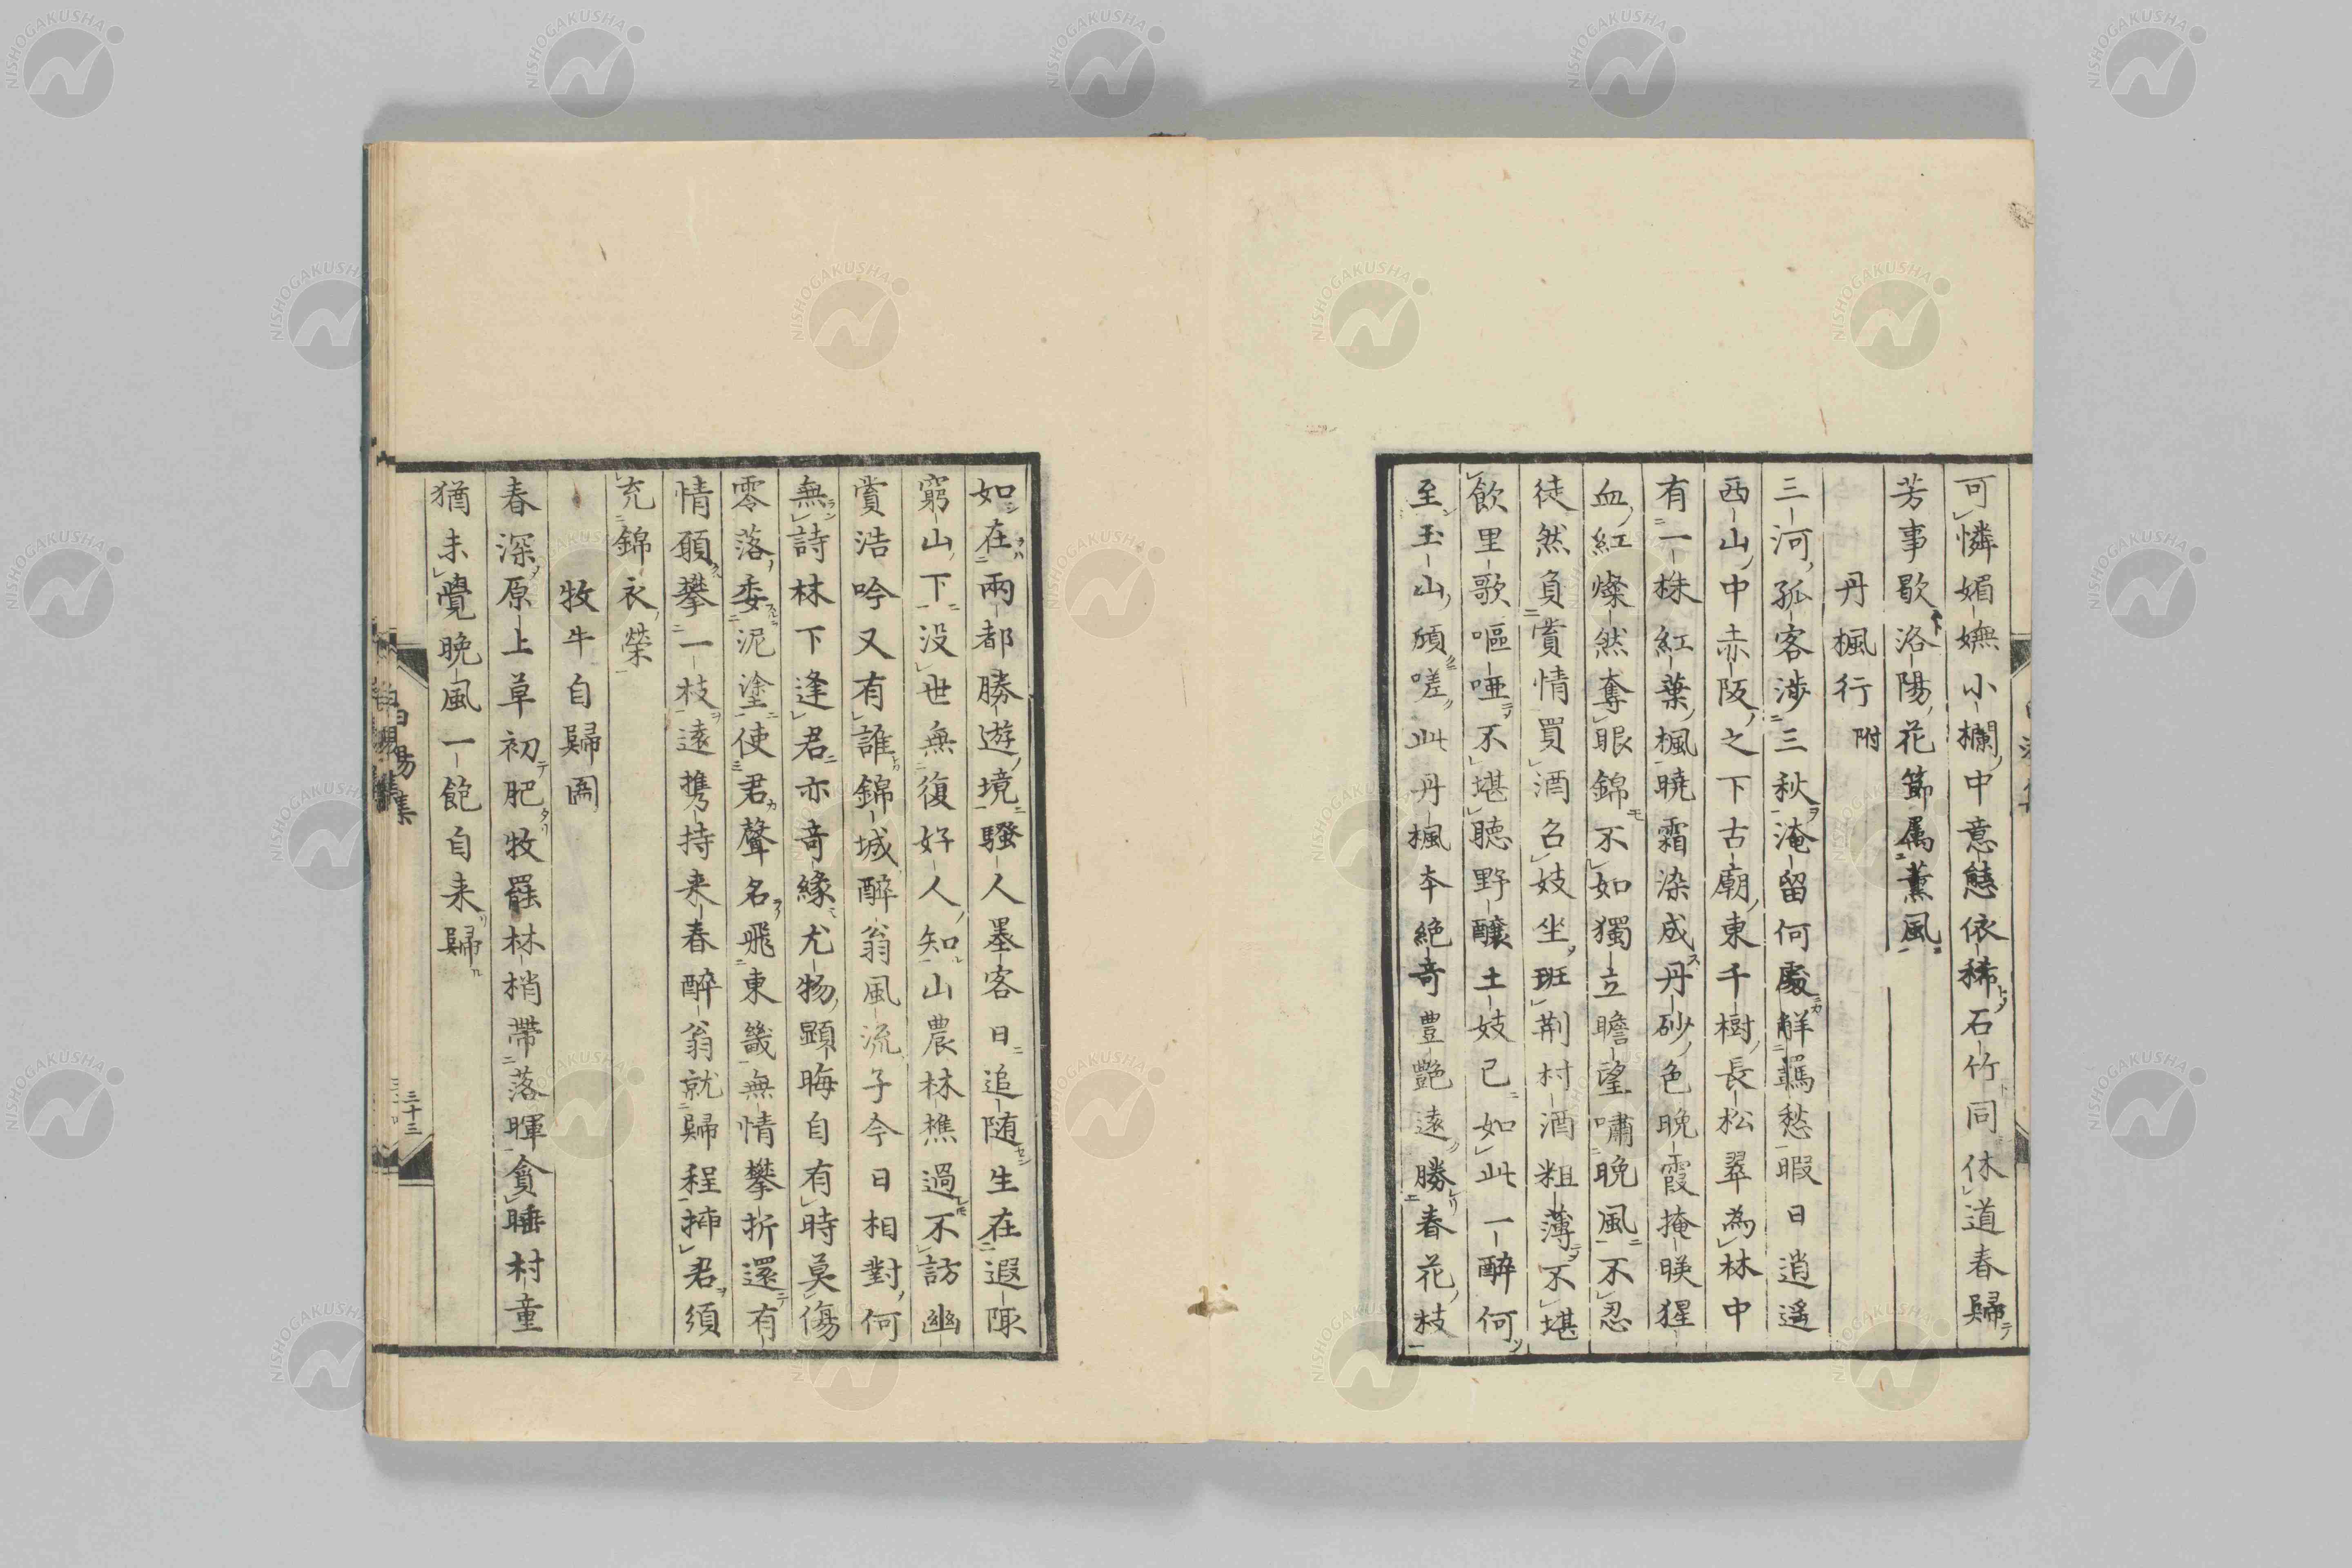 可憐媚嫵小欄中意態依稀石竹同休道春歸
芳事歇洛陽花節属薫風
丹楓行 附
三河孤客渉三秋淹留何處解羈愁暇日逍遥
西山中赤阪之下古廟東千樹長松翠為林中
有一株紅葉楓曉霜染成丹砂色晩霞掩映猩
血紅燦然奪眼錦不如獨立瞻望嘯晩風不忍
徒然負賞情買酒召妓坐班荆村酒粗薄不堪
飲里歌嘔啞不堪聴野醸土妓已如此一醉何
至玉山頽嗟此丹楓本絶奇豊艶遠勝春花枝
如在兩都勝遊境騒人墨客日追随生在遐陬
窮山下没世無復好人知山農林樵過不訪幽
賞浩吟又有誰錦城醉翁風流子今日相對何
無詩林下逢君亦奇縁尤物顕晦自有時莫傷
零落委泥塗使君聲名飛東畿無情攀折還有
情願攀一枝遠携持来春醉翁就歸程挿君須
充錦衣榮
牧牛自歸圖
春深原上草初肥牧罷林梢帶落暉貪睡村童
猶未覺晩風一飽自来歸
三十三
NISHOGAKUSHA